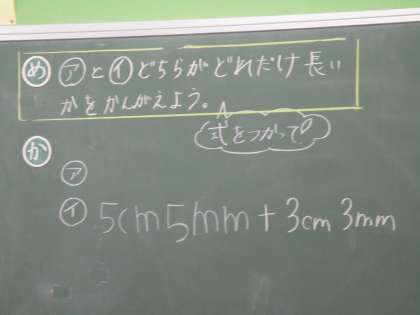 め ㋐と㋑どちらがどれだけ長い
かをかんがえよう。
式をつかって!
か
㋐
㋑ 5cm5mm+3cm3mm